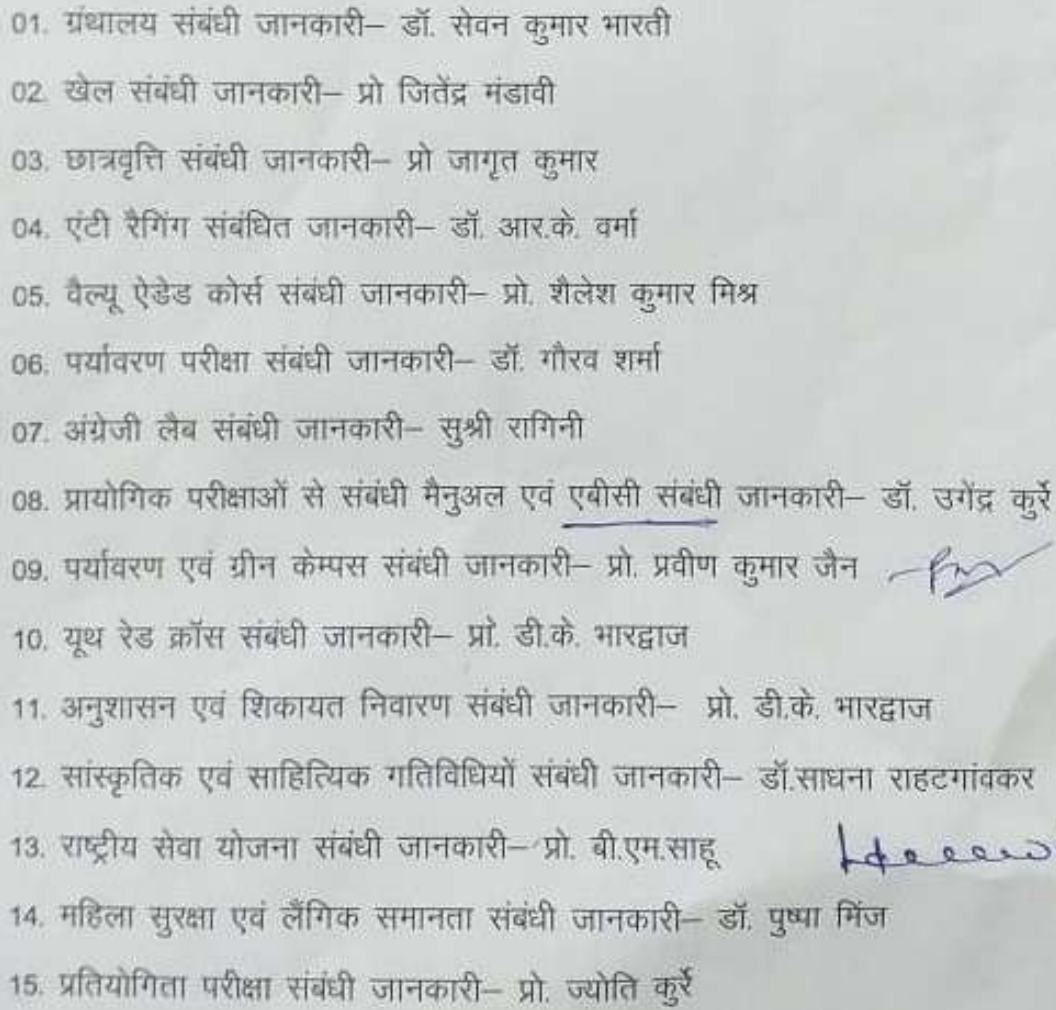 01. ग्रंथालय संबंधी जानकारी– डॉ. सेवन कुमार भारती
02. खेल संबंधी जानकारी– प्रो जितेंद्र मंडावी
03. छात्रवृत्ति संबंधी जानकारी– प्रो जागृत कुमार
04. एंटी रैगिंग संबंधित जानकारी– डॉ. आर.के. वर्मा
05. वैल्यू ऐडेड कोर्स संबंधी जानकारी– प्रो. शैलेश कुमार मिश्र
06. पर्यावरण परीक्षा संबंधी जानकारी– डॉ. गौरव शर्मा
07. अंग्रेजी लैब संबंधी जानकारी– सुश्री रागिनी
08. प्रायोगिक परीक्षाओं से संबंधी मैनुअल एवं एबीसी संबंधी जानकारी– डॉ. उगेंद्र कुर्रे
09. पर्यावरण एवं ग्रीन केम्पस संबंधी जानकारी– प्रो. प्रवीण कुमार जैन
10. यूथ रेड क्रॉस संबंधी जानकारी– प्रो. डी.के. भारद्वाज
11. अनुशासन एवं शिकायत निवारण संबंधी जानकारी– प्रो. डी.के. भारद्वाज
12. सांस्कृतिक एवं साहित्यिक गतिविधियों संबंधी जानकारी– डॉ.साधना राहटगांवकर
13. राष्ट्रीय सेवा योजना संबंधी जानकारी– प्रो. बी.एम.साहू
14. महिला सुरक्षा एवं लैंगिक समानता संबंधी जानकारी– डॉ. पुष्पा मिंज
15. प्रतियोगिता परीक्षा संबंधी जानकारी– प्रो. ज्योति कुर्रे